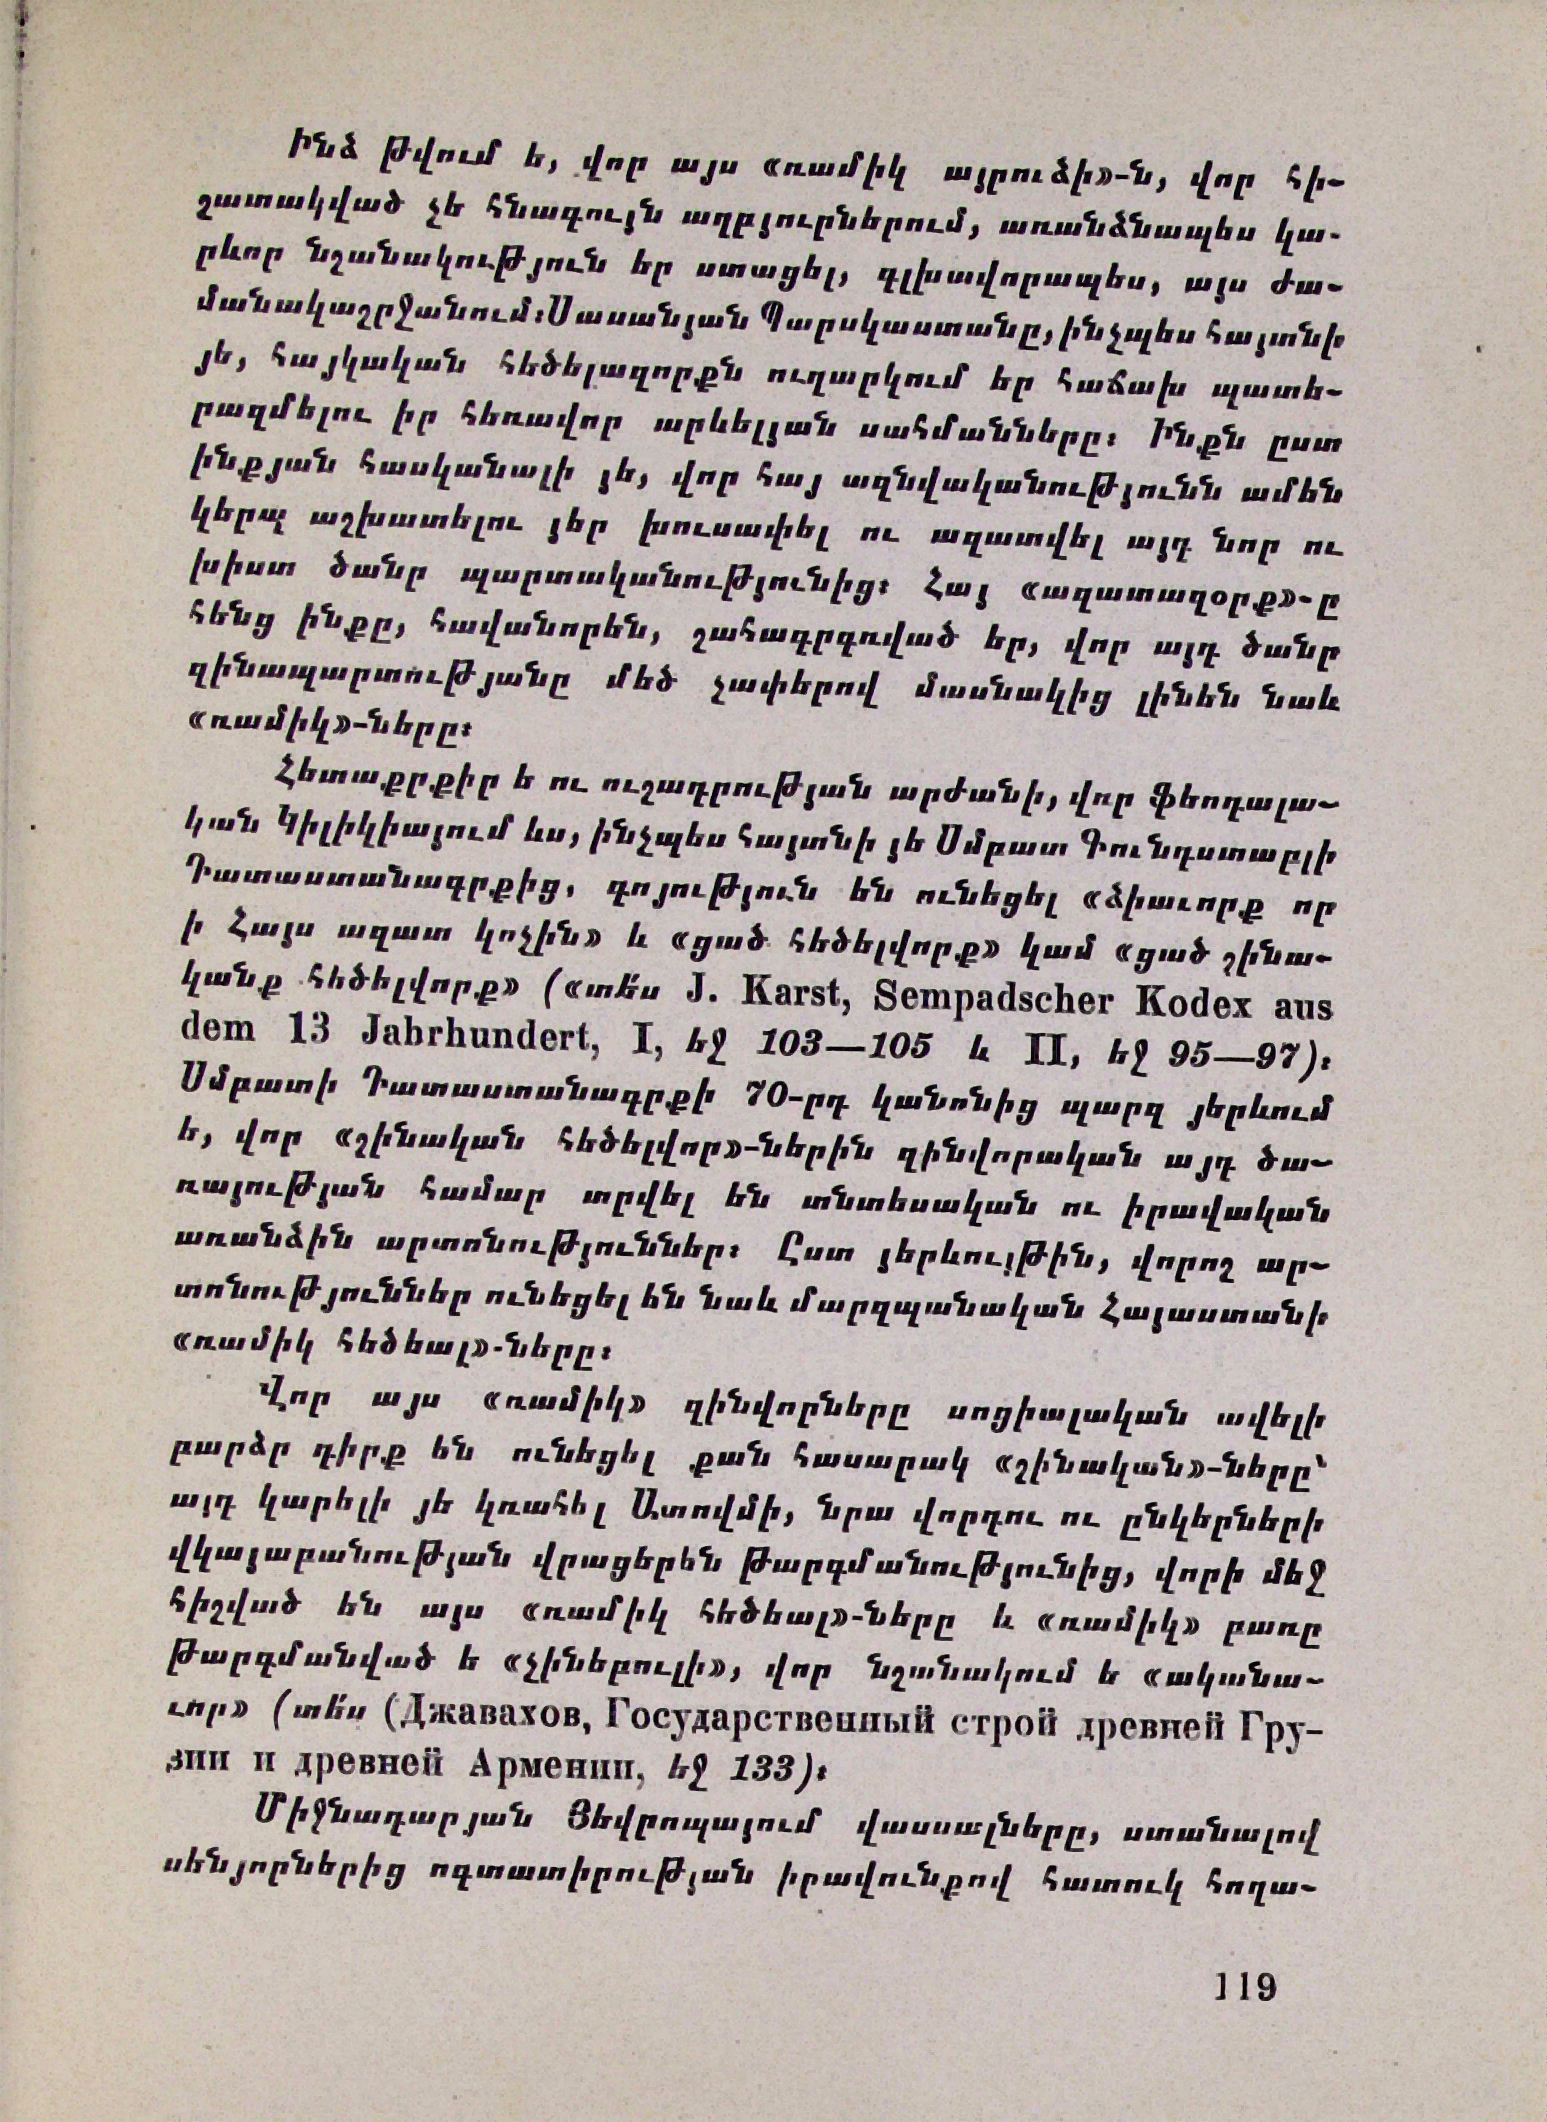 Ինձ թվում ե, վոր այս «ռամիկ այրուձի»-ն, վոր հի-
շատակված չե հնագույն աղբյուրներում, առանձնապես կա-
րևոր նշանակություն եր ստացել, գլխավորապես, այս ժա-
մանակաշրջանում։ Սասանյան Պարսկաստանը, ինչպես հայտնի
յե, հայկական հեծելազորքն ուղարկում եր հաճախ պատե-
րազմելու իր հեռավոր արևելյան սահմանները։ Ինքն ըստ
ինքյան հասկանալի յե, վոր հայ ազնվականությունն ամեն
կերպ աշխատելու յեր խուսափել ու ազատվել այդ նոր ու
խիստ ծանր պարտականությունից։ Հայ «ազատազօրք»-ը
հենց ինքը, հավանորեն, շահագրգռված եր, վոր այդ ծանր
զինապարտությանը մեծ չափերով մասնակից լինեն նաև
«ռամիկ»-ները։
Հետաքրքիր ե ու ուշադրության արժանի, վոր ֆեոդալա-
կան Կիլիկիայում ևս, ինչպես հայտնի յե Սմբատ Գունդստաբլի
Դատաստանագրքից, գոյություն են ունեցել «ձիաւորք որ
ի Հայս ազատ կոչին» և «ցած հեծելվորք» կամ «ցած շինա-
կանք հեծելվորք» («տե՛ս J. Karst, Sempadscher Kodex aus
dem 13 Jahrhundert, I, եջ 103—105 և II, եջ 95—97)։
Սմբատի Դատաստանագրքի 70-րդ կանոնից պարզ յերևում
ե, վոր «շինական հեծելվոր»-ներին զինվորական այդ ծա-
ռայության համար տրվել են տնտեսական ու իրավական
առանձին արտոնություններ։ Ըստ յերևույթին, վորոշ ար-
տոնություններ ունեցել են նաև մարզպանական Հայաստանի
«ռամիկ հեծեալ»-ները։
Վոր այս «ռամիկ» զինվորները սոցիալական ավելի
բարձր դիրք են ունեցել քան հասարակ «շինական»-ները՝
այդ կարելի յե կռահել Ատովմի, նրա վորդու ու ընկերների
վկայաբանության վրացերեն թարգմանությունից, վորի մեջ
հիշված են այս «ռամիկ հեծեալ»-ները և «ռամիկ» բառը
թարգմանված ե «չինեբուլի», վոր նշանակում ե «ականա-
ւոր» (տե՛ս (Джавахов, Государственный строй древней Гру-
зии и древней Армении, եջ 133)։
Միջնադարյան Յեվրոպայում վասսալները, ստանալով
սենյորներից ոգտատիրության իրավունքով հատուկ հողա-
119